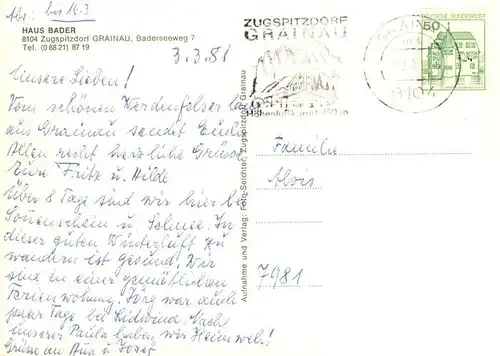 Abr: bis 16.3
HAUS BADER
8104 Zugspitzdorf GRAINAU, Baderseeweg 7
Tel. (0 88 21) 87 19
3.3.81
Unsere Lieben!
Vom schönen Werdenfelser
aus Grainau sendet Euch
Allen recht herzliche Grüsse
Eure Fritz u. Hilde
Über 8 Tage sind wir hier bei
Sonnenschein u. Schnee. In
dieser guten Winterluft zu
wandern ist gesund. Wir
sind in einer gemütlichen
Ferienwohnung. Jörg war auch
paar Tage bei Lidwind. Nach
unserer Paula haben wir Heimweh!
Grüsse an Ana u. Josef
Aufnahme und Verlag: Foto-Seichter, Zugspitzdorf Grainau
ZUGSPITZDORF
GRAINAU
Höhenluftkurort
8104
50
DEUTSCHE BUNDESPOST
Familie
Alois
7981